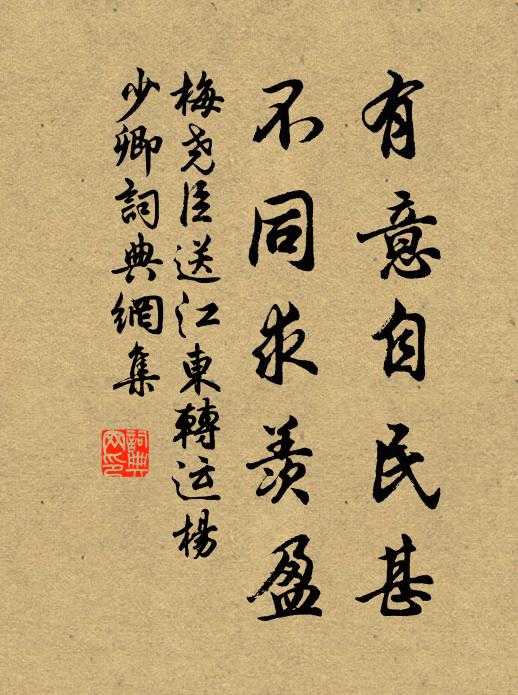 有意自民甚
不同求羨盈
梅堯臣送江東轉运楊
少卿詞典網集
詞典
网印